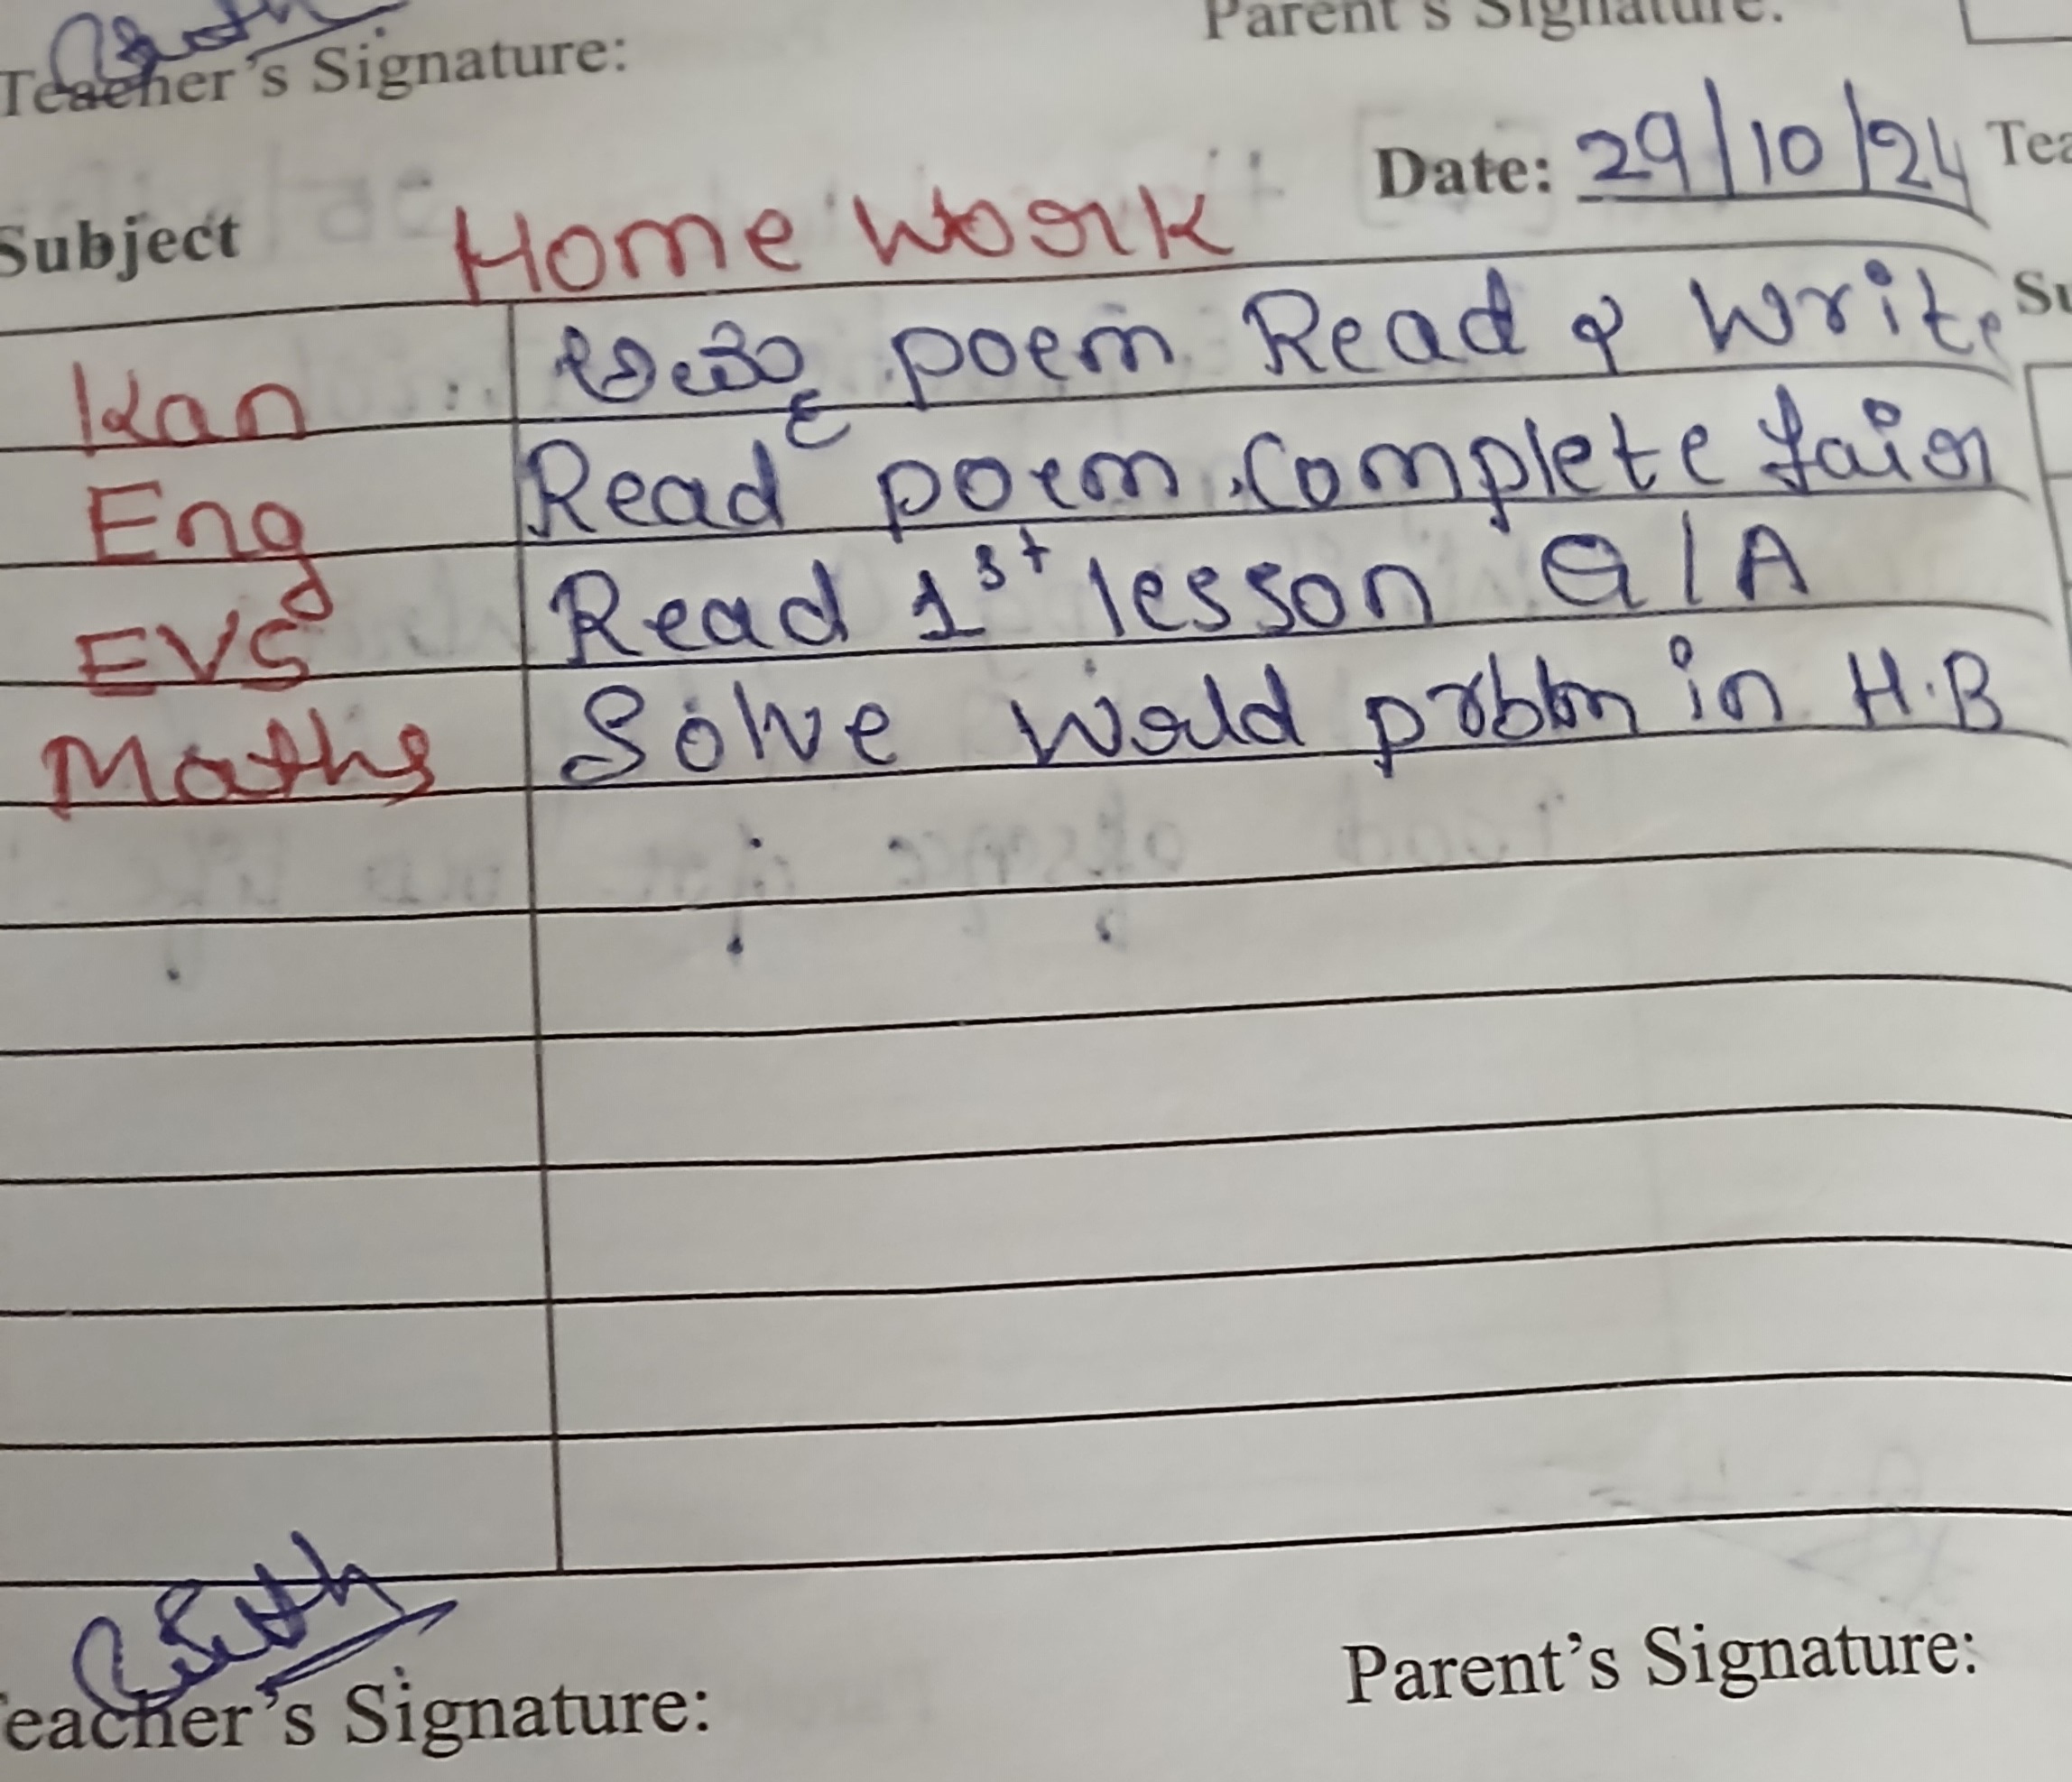 Teacher's Signature:
Parent's Signature:
Date: 29/10/24
Tea
Subject
Home Work
Su
Kan
poem Read & Write
Eng
Read poem. Complete fair
EVS
Read 1st lesson Q/A
Maths
Solve World problm in H.B
Teacher's Signature:
Parent's Signature: